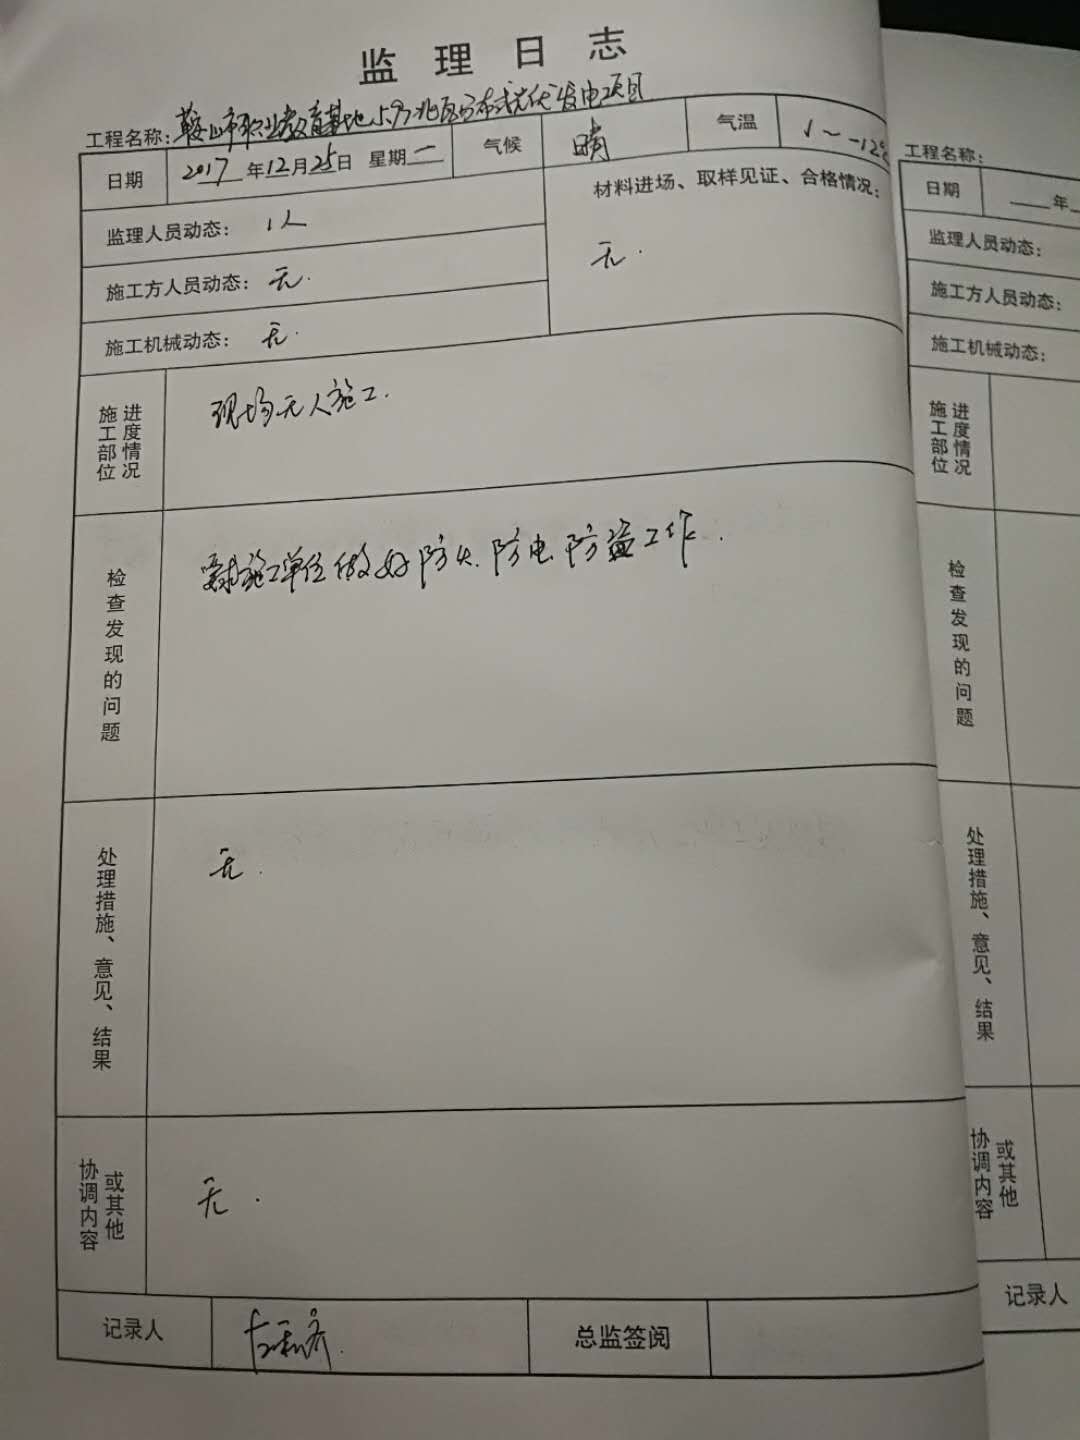 监理日志
工程名称：鞍山市职业教育基地5.9兆瓦分布式光伏发电项目
日期 2017年12月25日 星期一 气候 晴 气温 1～-12℃
监理人员动态： 1人
材料进场、取样见证、合格情况：
无.
施工方人员动态： 无.
施工机械动态： 无.
施工部位进度情况
现场无人施工.
检查发现的问题
要求施工单位做好防火.防电.防盗工作.
处理措施、意见、结果
无.
协调内容或其他
无.
记录人
总监签阅
工程名称：
日期 年
监理人员动态：
施工方人员动态：
施工机械动态：
施工部位进度情况
检查发现的问题
处理措施、意见、结果
协调内容或其他
记录人